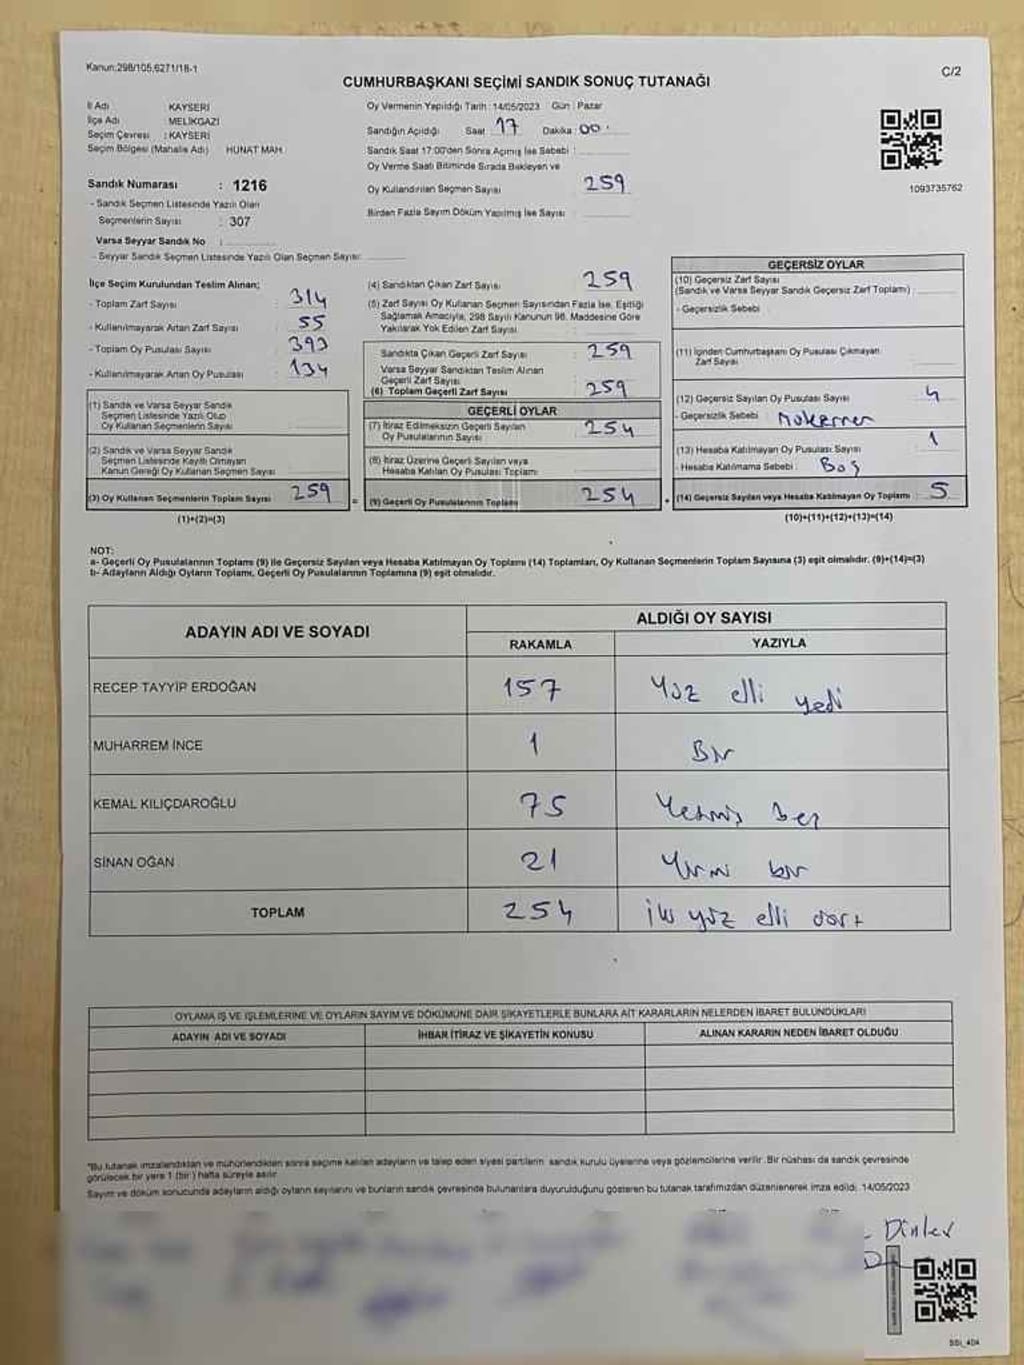 Kanun:298/105,6271/18-1
C/2
CUMHURBAŞKANI SEÇİMİ SANDIK SONUÇ TUTANAĞI
İl Adı KAYSERİ
İlçe Adı : MELİKGAZİ
Seçim Çevresi : KAYSERİ
Seçim Bölgesi (Mahalle Adı) HUNAT MAH.
Sandık Numarası : 1216
- Sandık Seçmen Listesinde Yazılı Olan
Seçmenlerin Sayısı : 307
Varsa Seyyar Sandık No :
- Seyyar Sandık Seçmen Listesinde Yazılı Olan Seçmen Sayısı:
Oy Vermenin Yapıldığı Tarih : 14/05/2023 Gün : Pazar
Sandığın Açıldığı Saat : 17 Dakika : 00
Sandık Saat 17:00'den Sonra Açılmış İse Sebebi :
Oy Verme Saati Bitiminde Sırada Bekleyen ve
Oy Kullandırılan Seçmen Sayısı 259
Birden Fazla Sayım Döküm Yapılmış İse Sayısı
1093735762
İlçe Seçim Kurulundan Teslim Alınan;
- Toplam Zarf Sayısı : 314
- Kullanılmayarak Artan Zarf Sayısı : 55
- Toplam Oy Pusulası Sayısı : 393
- Kullanılmayarak Artan Oy Pusulası : 134
(1) Sandık ve Varsa Seyyar Sandık
Seçmen Listesinde Yazılı Olup
Oy Kullanan Seçmenlerin Sayısı
(2) Sandık ve Varsa Seyyar Sandık
Seçmen Listesinde Kayıtlı Olmayan
Kanun Gereği Oy Kullanan Seçmen Sayısı
(3) Oy Kullanan Seçmenlerin Toplam Sayısı 259 =
(1)+(2)=(3)
(4) Sandıktan Çıkan Zarf Sayısı : 259
(5) Zarf Sayısı Oy Kullanan Seçmen Sayısından Fazla İse, Eşitliği
Sağlamak Amacıyla, 298 Sayılı Kanunun 98. Maddesine Göre
Yakılarak Yok Edilen Zarf Sayısı
Sandıkta Çıkan Geçerli Zarf Sayısı : 259
Varsa Seyyar Sandıktan Teslim Alınan
Geçerli Zarf Sayısı
(6) Toplam Geçerli Zarf Sayısı : 259
GEÇERLİ OYLAR
(7) İtiraz Edilmeksizin Geçerli Sayılan
Oy Pusulalarının Sayısı : 254
(8) İtiraz Üzerine Geçerli Sayılan veya
Hesaba Katılan Oy Pusulası Toplamı
(9) Geçerli Oy Pusulalarının Toplamı 254 +
GEÇERSİZ OYLAR
(10) Geçersiz Zarf Sayısı
(Sandık ve Varsa Seyyar Sandık Geçersiz Zarf Toplamı) :
- Geçersizlik Sebebi
(11) İçinden Cumhurbaşkanı Oy Pusulası Çıkmayan
Zarf Sayısı
(12) Geçersiz Sayılan Oy Pusulası Sayısı 4
- Geçersizlik Sebebi : Mükerrer
(13) Hesaba Katılmayan Oy Pusulası Sayısı : 1
- Hesaba Katılmama Sebebi : Boş
(14) Geçersiz Sayılan veya Hesaba Katılmayan Oy Toplamı : 5
(10)+(11)+(12)+(13)=(14)
NOT:
a- Geçerli Oy Pusulalarının Toplamı (9) ile Geçersiz Sayılan veya Hesaba Katılmayan Oy Toplamı (14) Toplamları, Oy Kullanan Seçmenlerin Toplam Sayısına (3) eşit olmalıdır. (9)+(14)=(3)
b- Adayların Aldığı Oyların Toplamı, Geçerli Oy Pusulalarının Toplamına (9) eşit olmalıdır.
ADAYIN ADI VE SOYADI
ALDIĞI OY SAYISI
RAKAMLA YAZIYLA
RECEP TAYYİP ERDOĞAN 157 Yüz elli yedi
MUHARREM İNCE 1 Bir
KEMAL KILIÇDAROĞLU 75 Yetmiş beş
SİNAN OĞAN 21 Yirmi bir
TOPLAM 254 İki yüz elli dört
OYLAMA İŞ VE İŞLEMLERİNE VE OYLARIN SAYIM VE DÖKÜMÜNE DAİR ŞİKAYETLERLE BUNLARA AİT KARARLARIN NELERDEN İBARET BULUNDUKLARI
ADAYIN ADI VE SOYADI İHBAR İTİRAZ VE ŞİKAYETİN KONUSU ALINAN KARARIN NEDEN İBARET OLDUĞU
"Bu tutanak imzalandıktan ve mühürlendikten sonra seçime katılan adayların ve talep eden siyasi partilerin sandık kurulu üyelerine veya gözlemcilerine verilir. Bir nüshası da sandık çevresinde
görülecek bir yere 1 (bir) hafta süreyle asılır.
Sayım ve döküm sonucunda adayların aldığı oyların sayılarını ve bunların sandık çevresinde bulunanlara duyurulduğunu gösteren bu tutanak tarafımızdan düzenlenerek imza edildi. 14/05/2023
Dinler